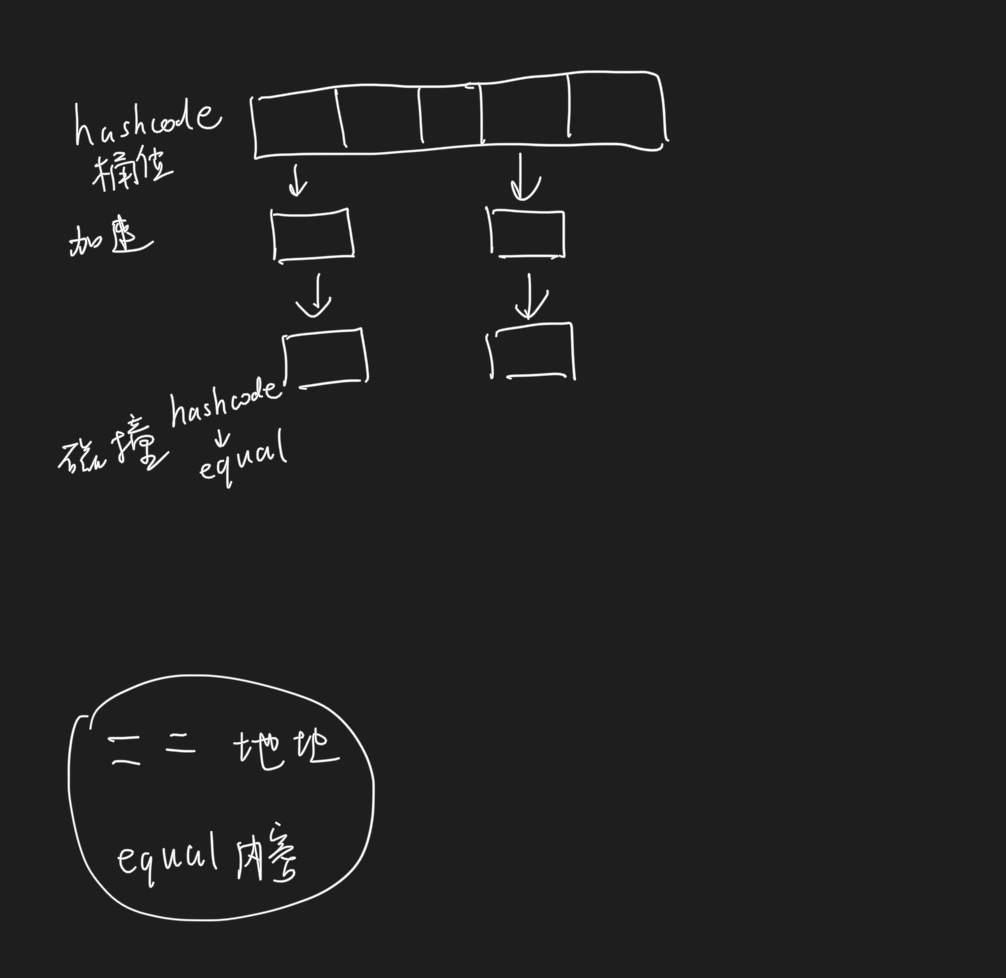 hashcode
桶位
加速
碰撞 hashcode
↓
equal
== 地地
equal 内容